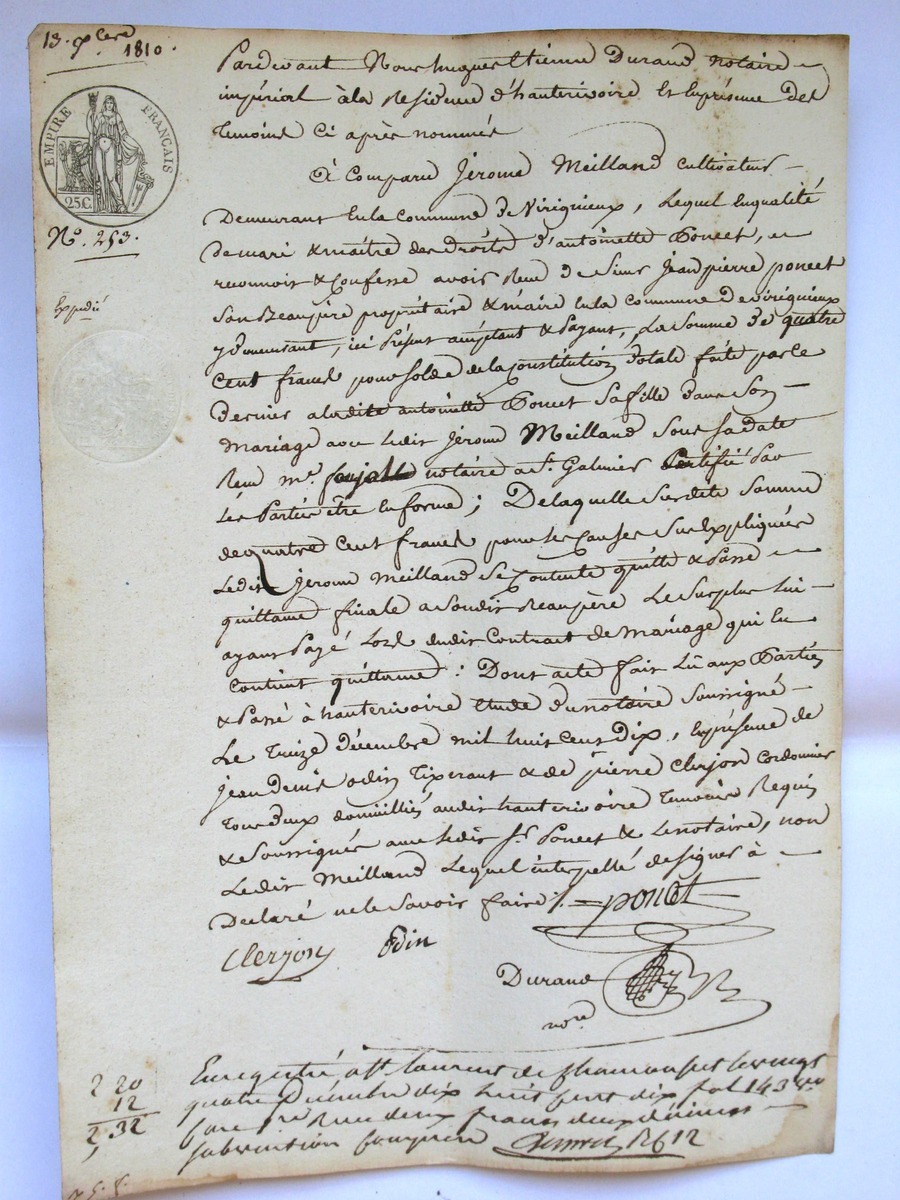 13. Xbre 1810.
EMPIRE FRANÇAIS
25C.
N°. 253.
Expédié
Pardevant Nous hugues Etienne Durand notaire
impérial à la Residence d'hauterivoire Et En présence des
temoins Ci après nommés
A Comparu Jérome Meilland Cultivateur
Demeurant En la Commune de Virignieux, Lequel En qualité
de mari & maître des Droits d'antoinette Poncet, a
reconnu & Confessé avoir Recu de Sieur Jean pierre poncet
Son Beaupère propriétaire & maire En la Commune De Viriguieux
y Demeurant, ici Présent acceptant & Payant, La Somme De quatre
Cent francs pour Solde de la Constitution Dotale faite par Ce
Dernier a ladite antoinette Poncet Sa fille Dans Son
Mariage avec Ledit Jérome Meilland Sous Sa Date
Recu Me. notaire a St. Galmier Certifié Par
Les Parties être En forme; De laquelle Susdite Somme
de quatre Cent francs pour les Causes Sus Expliquées
Ledit Jérome Meilland Se Contente quitte & Passe
quittance finale a Soudit Beaupère Le Surplus Lui
ayant Payé Lors dudit Contrat de Mariage qui En
Contient quittance : Dont acte fait Lû aux Parties
& Passé à hauterivoire Etude Du notaire Soussigné
Le treize Décembre mil huit Cent Dix, En présence de
Jean Denis Odin Tixerant & de pierre Clerjon Cordonnier
tous Deux domiciliés audit hauterivoire temoins Requis
& Soussignés avec Ledit Sr. Poncet & Le notaire, non
Ledit Meilland Lequel interpellé de Signer à
Déclaré ne le Savoir faire ./.
poncet
Clerjon Odin
Durand
nore
Enregistré a St laurent de Chamousset le vingt
quatre Décembre dix huit cent dix fol 143 vo
Case Recu deux francs deux décimes
subvention comprise R 612
2 20
12
2, 32